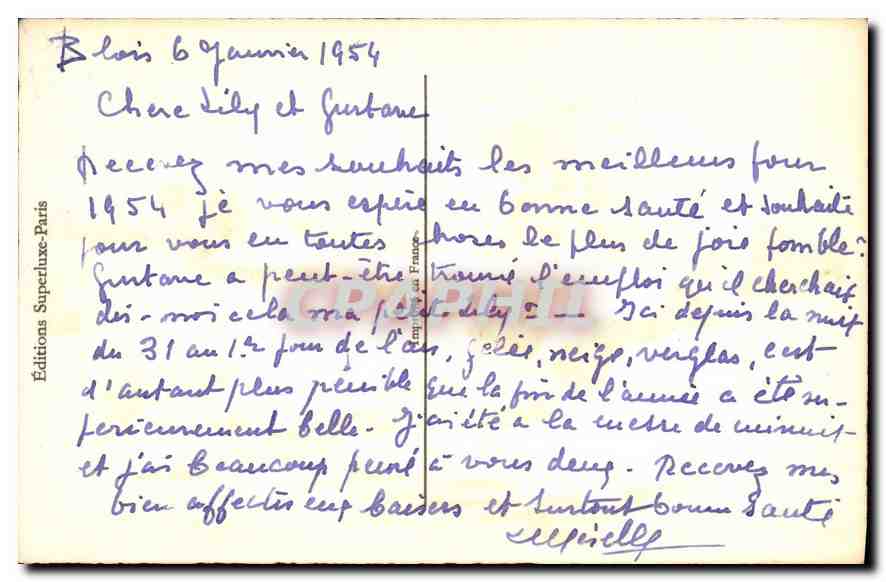 Blois 6 Janvier 1954
Chere Lily et Gustave
Recevez mes souhaits les meilleurs pour
1954 je vous espère en bonne santé et souhaite
pour vous en toutes choses le plus de joie possible.
Gustave a peut-être trouvé l'emploi qu'il cherchait
dis-moi cela ma petite Lily ? — Ici depuis la nuit
du 31 au 1er jour de l'an, gelée, neige, verglas, c'est
d'autant plus penible que la fin de l'année a été su-
perieurement belle. J'ai été a la messe de minuit
et j'ai beaucoup pensé à vous deux. Recevez mes
bien affectueux baisers et surtout bonne santé
Éditions Superluxe-Paris
Imprimé en France
CPAPHIL